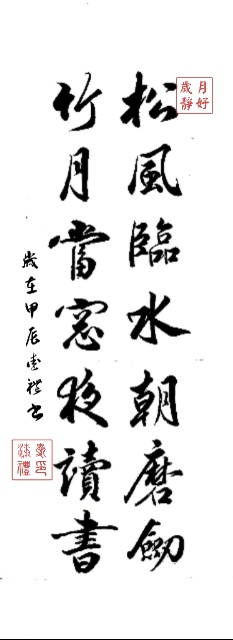 月好歲靜
松風臨水朝磨劔
竹月當窓夜讀書
歲在甲辰